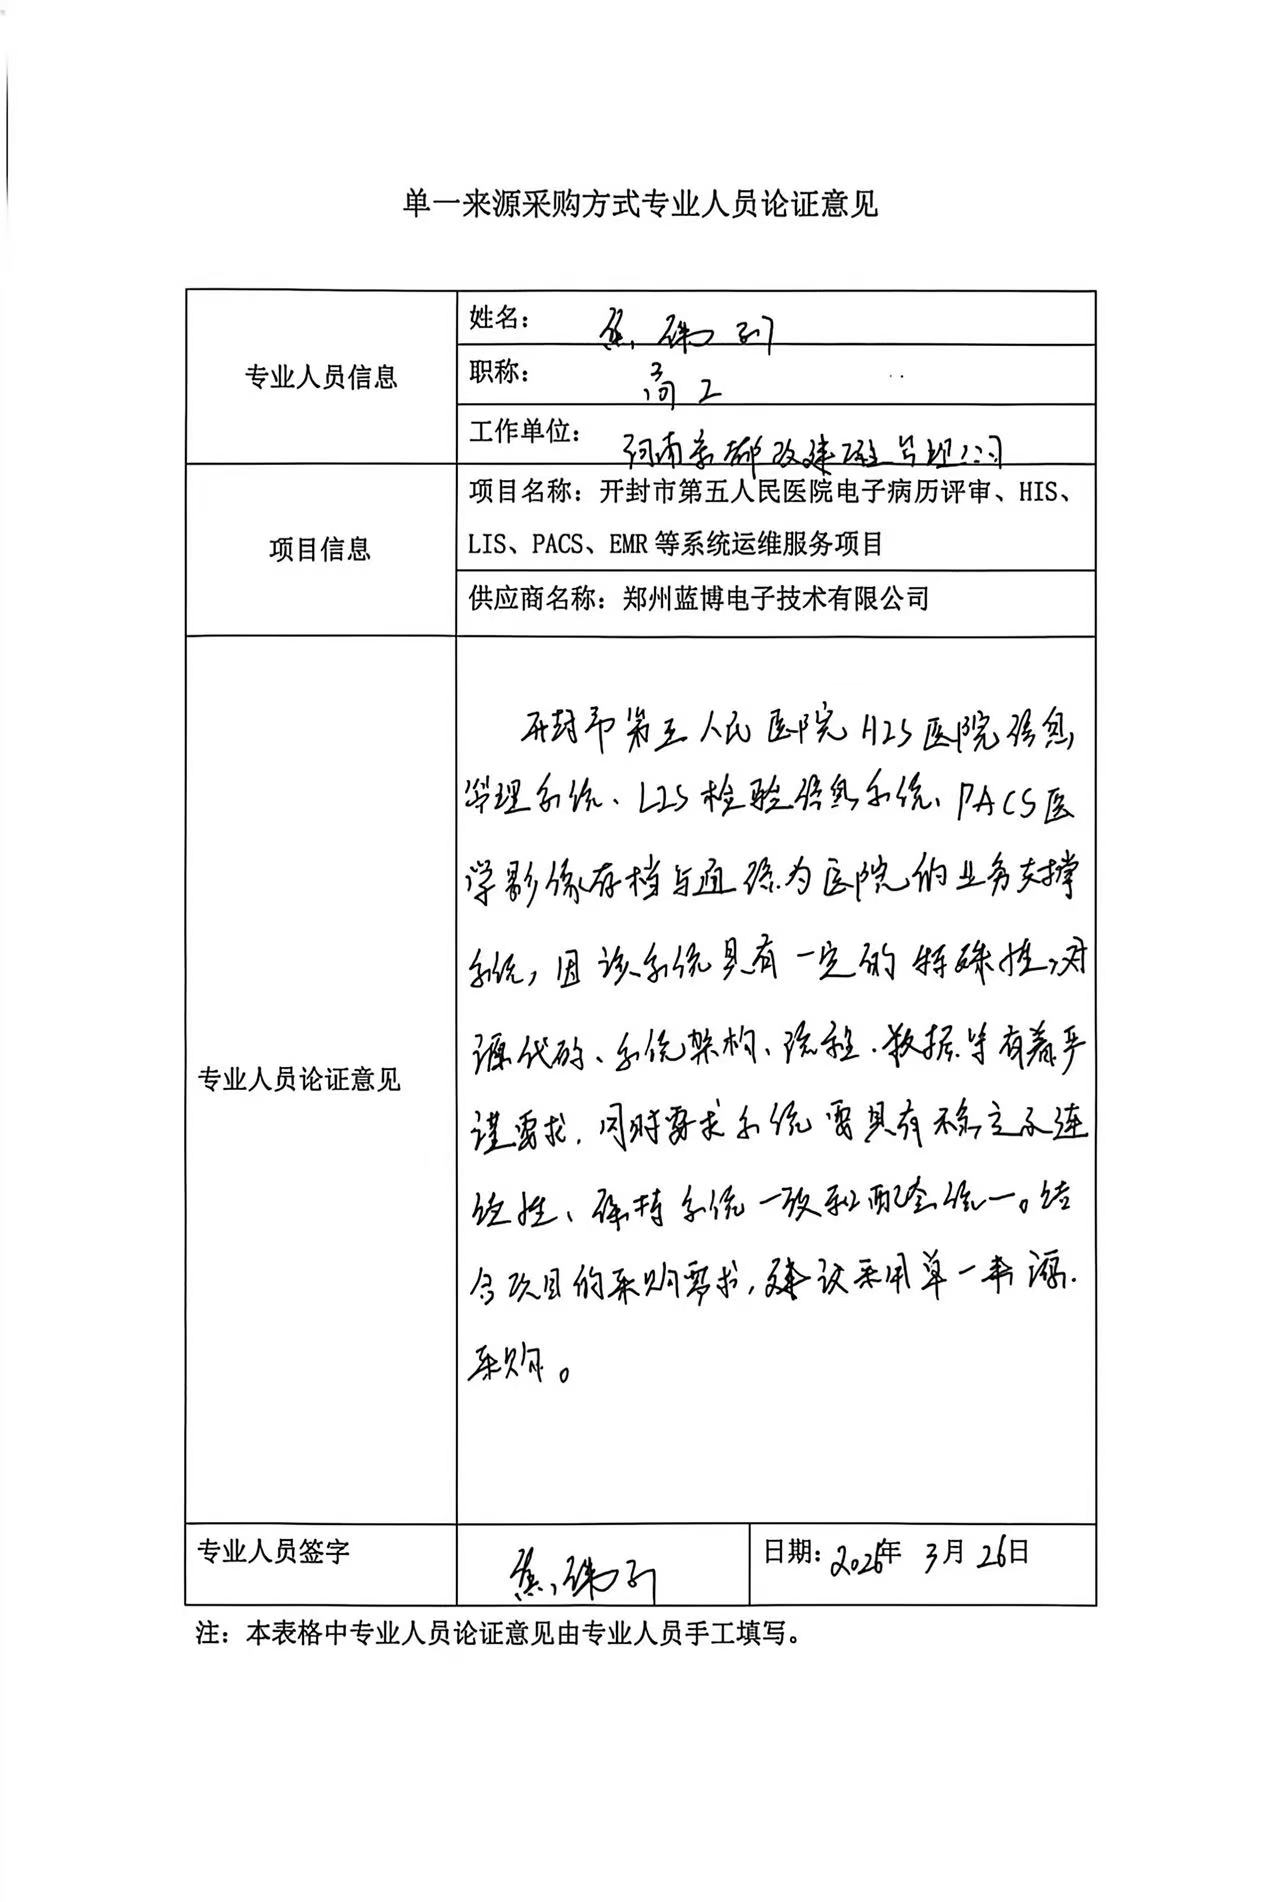 单一来源采购方式专业人员论证意见
专业人员信息
姓名：焦
职称：高工
工作单位：河南省 建 管理公司
项目信息
项目名称：开封市第五人民医院电子病历评审、HIS、
LIS、PACS、EMR等系统运维服务项目
供应商名称：郑州蓝博电子技术有限公司
专业人员论证意见
开封市第五人民医院HIS医院信息
管理系统、LIS检验信息系统、PACS医
学影像存档与通信为医院的业务支撑
系统，因该系统具有一定的特殊性，对
源代码、系统架构、流程、数据等有着严
谨要求，同时要求系统需具有稳定及连
续性、保持系统一致和配套统一。结
合项目的采购需求，建议采用单一来源
采购。
专业人员签字
焦
日期：2026年3月26日
注：本表格中专业人员论证意见由专业人员手工填写。